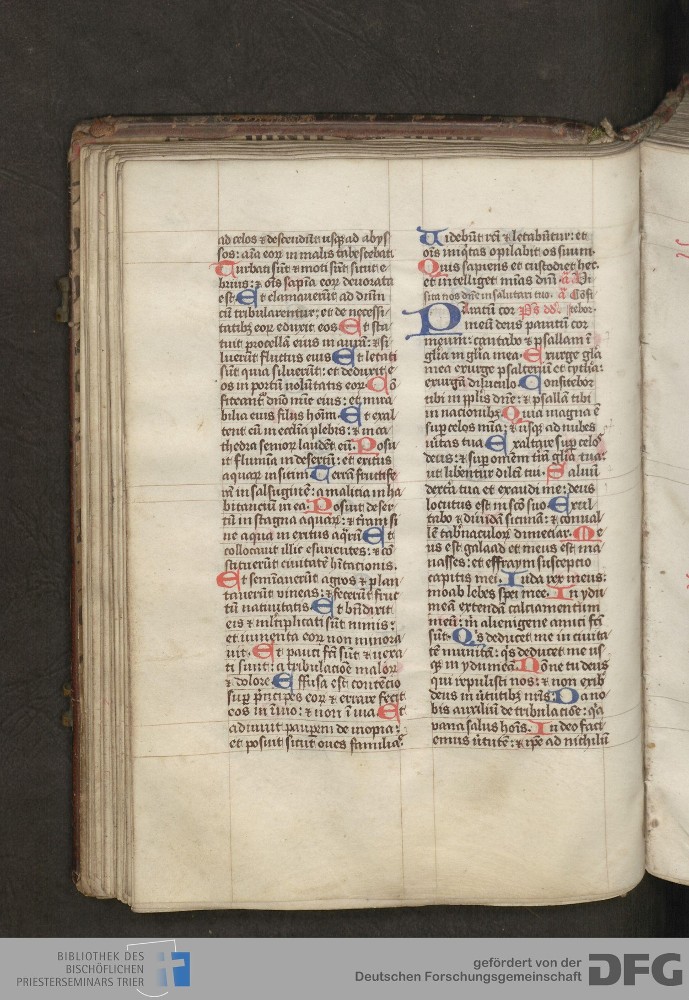 ad celos ⁊ descendūt usq̄ ad abys
sos: aīa eoꝝ in malis tabescebat.
Turbati sūt ⁊ moti sūt sicut e
brius: ⁊ oīs sapīa eoꝝ deuorata
est. Et clamauerūt ad dn̄m
cū tribularentur: et de necessi
tatibꝫ eoꝝ eduxit eos. Et sta
tuit procellā eius in aurā: ⁊ si
luerūt fluctus eius. Et letati
sūt quia siluerūt: et deduxit e
os in portū volūtatis eoꝝ. Cō
fiteantᷣ dn̄o mīe eius: et mira
bilia eius filiis hoīm. Et exal
tent eū in eccl̄ia plebis: ⁊ in ca
thedra senioꝝ laudēt eū. Posu
it flumīa in desertū: et exitus
aquaꝝ in sitim. Terrā fructife
rā in salsuginē: a malicia in ha
bitanciū in ea. Posuit deser
tū in stagna aquaꝝ: ⁊ terrā si
ne aqua in exitus aq̄rū. Et
collocauit illic esurientes: ⁊ cō
stituerūt ciuitatē hītationis.
Et semīauerūt agros ⁊ plan
tauerūt vineas: ⁊ fecerūt fruc
tū natiuitatis. Et bn̄dixit
eis ⁊ m̄ltiplicati sūt nimis:
et iumenta eoꝝ non minora
uit. Et pauci fc̄i sūt ⁊ uexa
ti sunt: a tribulacōe maloꝝ
⁊ dolore. Effusa est contēcio
suꝑ prīcipes eoꝝ ⁊ errare fecit
eos in īuio: ⁊ non ī uia. Et
adiuuit pauꝑem de inopia:
et posuit sicut oues familias.
Uidebūt rc̄i ⁊ letabūtur: et
oīs iniq̄tas opilabit os suum.
Quis sapiens et custodiet hec:
et intelliget mīas dn̄i. a Vi
sita nos dn̄e in salutari tuo. a Cōfi
Paratū cor Ps dd. tebor.
meū deus paratū cor
meum: cantabo ⁊ psallam ī
glīa in glīa mea. Exurge glīa
mea exurge psalteriū et cythara:
exurgā diluculo. Confitebor
tibi in pplis dn̄e: ⁊ psallā tibi
in nacionibꝫ. Quia magna ē
suꝑ celos mīa: ⁊ usq̄ ad nubes
ūitas tua. Exaltare suꝑ celos
deus: ⁊ suꝑ omēm t̄ram glīa tua:
ut liberentur dilc̄i tui. Saluū
dextᵃ tua et exaudi me: deus
locutus est in sc̄o suo. Exul
tabo ⁊ diuidā sicimā: ⁊ conual
lē tab̄naculoꝝ dimeciar. Me
us est galaad et meus est ma
nasses: et effraym suscepcio
capitis mei. Iuda rex meus:
moab lebes spei mee. In ydu
meā extendā calciamentum
meū: m̄ alienigene amici fc̄i
sūt. Qⁱs deducet me in ciuita
tē munitā: qⁱs deducet me us
q̄ in ydumeā. Nōne tu deus
qui repulisti nos: ⁊ non exib
deus in ūtutibꝫ nr̄is. Da no
bis auxiliū de tribulacōe: qᵃ
uana salus hoīs. In deo faci
emus ūtutē: ⁊ ip̄e ad nichilū
BIBLIOTHEK DES
BISCHÖFLICHEN
PRIESTERSEMINARS TRIER
gefördert von der
Deutschen Forschungsgemeinschaft
DFG